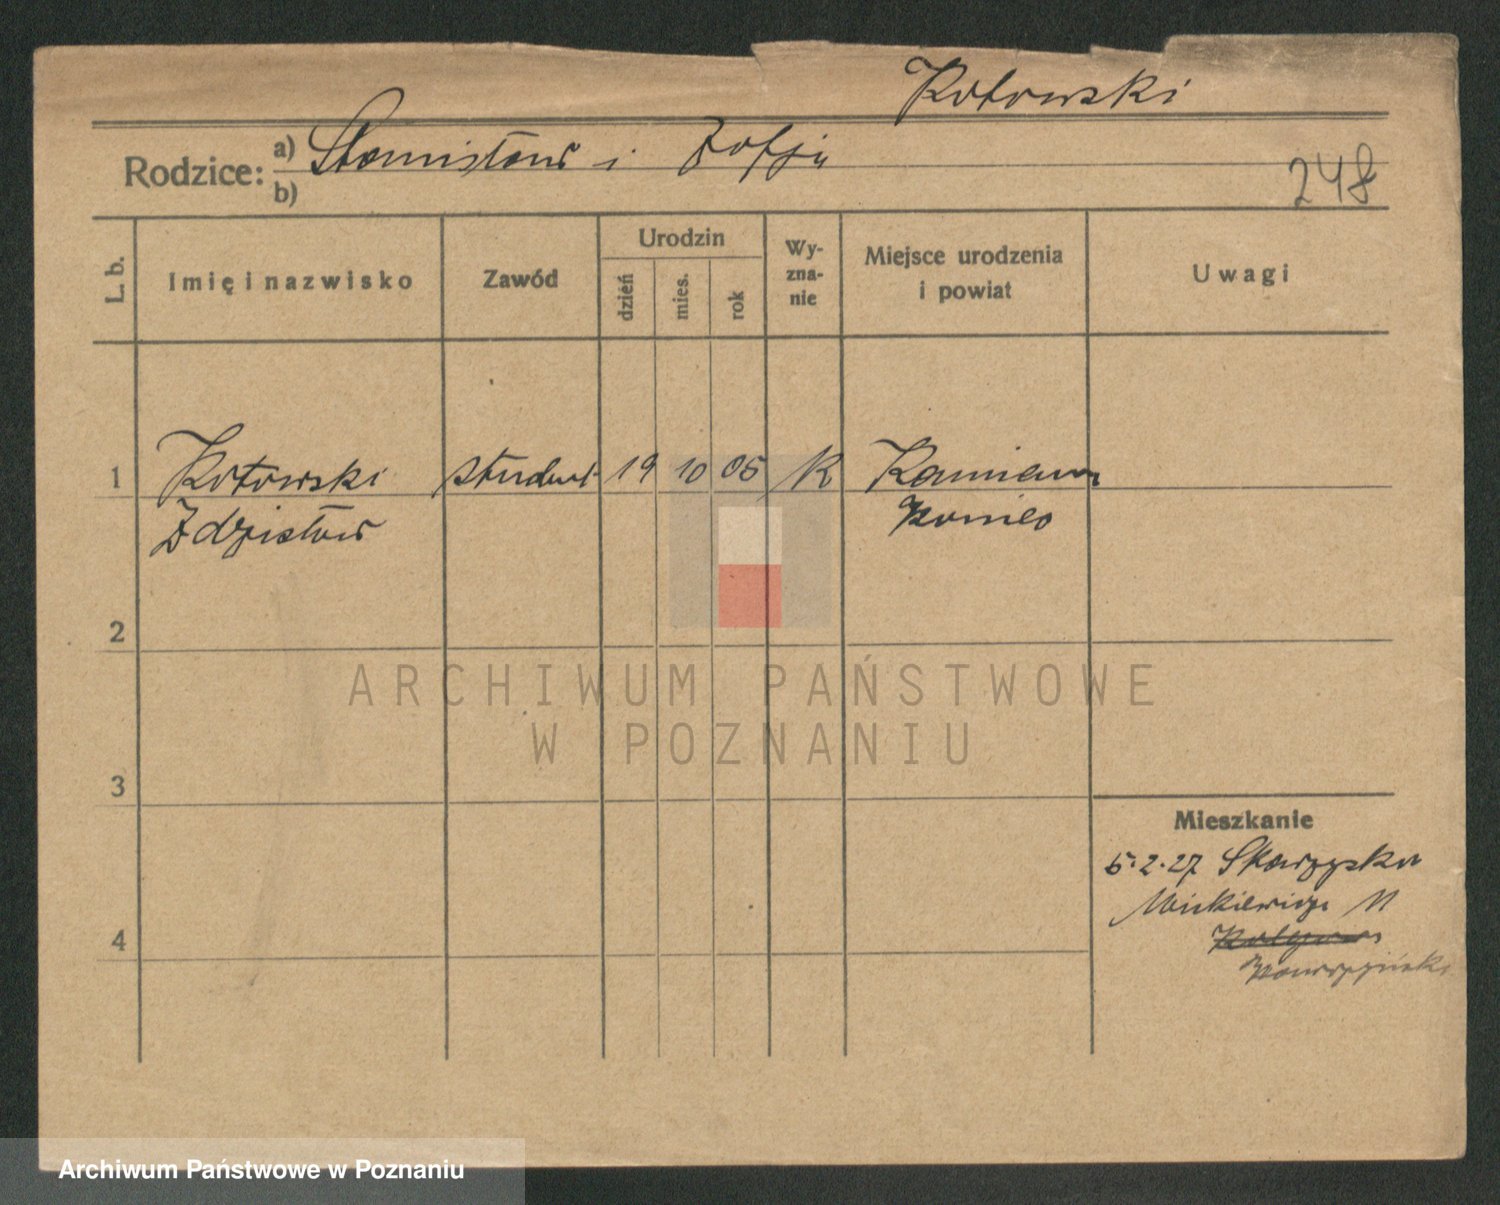 Kotowski
Rodzice: a) Stanisław i Zofja
b)
248
L. b. Imię i nazwisko Zawód Urodzin dzień mies. rok Wyznanie Miejsce urodzenia i powiat Uwagi
1 Kotowski student 19 10 05 K
Zdzisław
2
3
4
Mieszkanie
5.2.27
Mickiewicza 11
ARCHIWUM PAŃSTWOWE
W POZNANIU
Archiwum Państwowe w Poznaniu